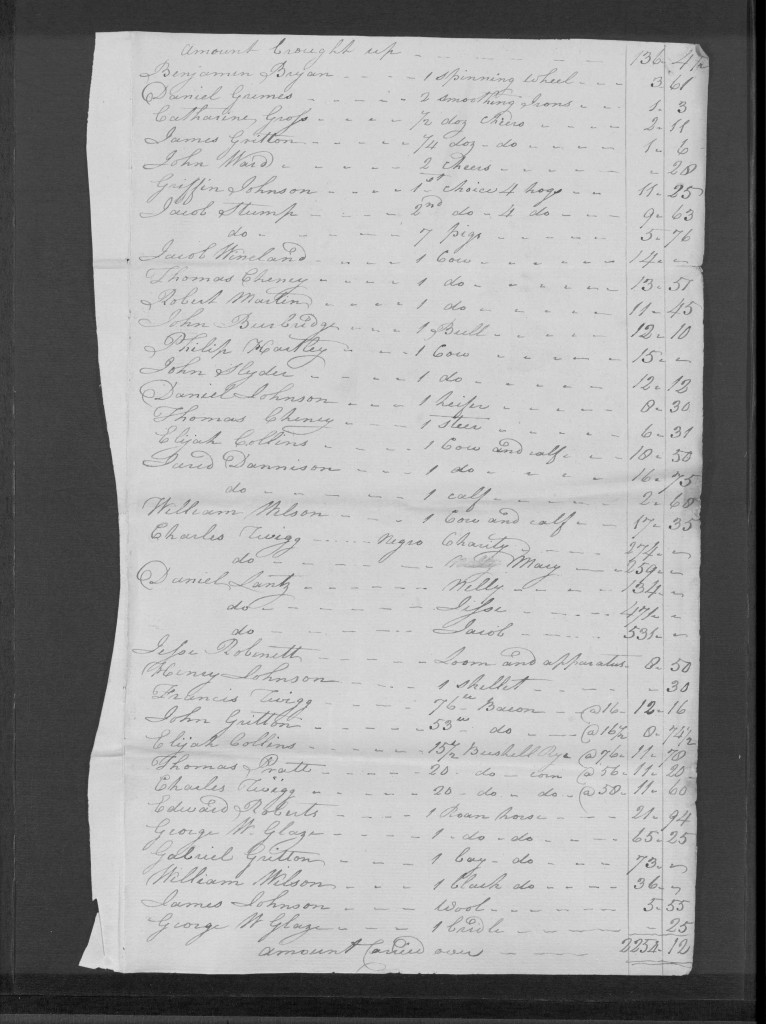 amount brought up - - - - - 136 - 4 1/2
Benjamin Bryan - - - - 1 spinning wheel - - - 3 - 61
Daniel Grimes - - - - 2 smoothing Irons - - - 1 - 3
Catharine Gross - - - - 1/2 doz Cheers - - - - 2 - 11
James Gritton - - - - 1/4 doz - do - - - - 1 - 6
John Ward - - - - 2 Cheers - - - - - 28
Griffin Johnson - - - - 1st choice 4 hogs - - - 11 - 25
Jacob Stump - - - - 2nd do - 4 do - - - 9 - 63
do - - - - 7 pigs - - - - 5 - 76
Jacob Wineland - - - - 1 Cow - - - - 14 - "
Thomas Cheney - - - - 1 do - - - - 13 - 51
Robert Martin - - - - 1 do - - - - 11 - 45
John Burbridge - - - - 1 Bull - - - - 12 - 10
Philip Hartley - - - - 1 Cow - - - - 15 - "
John Slyder - - - - 1 do - - - - 12 - 12
Daniel Johnson - - - - 1 heifer - - - - 8 - 30
Thomas Cheney - - - - 1 steer - - - - 6 - 31
Elijah Collins - - - - 1 Cow and calf - - 18 - 50
Jared Dannison - - - - 1 do - - - - 16 - 75
do - - - - 1 calf - - - - 2 - 68
William Wilson - - - - 1 Cow and calf - - 17 - 35
Charles Twigg - - - - Negro Charity - - - - 274 - "
do - - - - Mary - - 259 - "
Daniel Lantz - - - - Willy - - - - 134 - "
do - - - - Jesse - - - - 471 - "
do - - - - Jacob - - - - 531 - "
Jesse Robinett - - - - Loom and apparatus - 8 - 50
Henry Johnson - - - - 1 skellet - - - - - 30
Francis Twigg - - - - 76 w Bacon - - @ 16 - 12 - 16
John Gritton - - - - 53 w do - - @ 16 1/2 8 - 74 1/2
Elijah Collins - - - - 15 1/2 Bushell Rye @ 76 - 11 - 78
Thomas Pratt - - - - 20 - do - corn @ 56 - 11 - 20
Charles Twigg - - - - 20 - do - do - @ 58 - 11 - 60
Edward Roberts - - - - 1 Roan horse - - - 21 - 94
George W. Glaze - - - - 1 - do - do - - - 65 - 25
Gabriel Gritton - - - - 1 bay - do - - - 73 - "
William Wilson - - - - 1 black do - - - 36 - "
James Johnson - - - - Wool - - - - 5 - 55
George W Glaze - - - - 1 bridle - - - - - 25
amount Caried over - - - - 2254 - 12